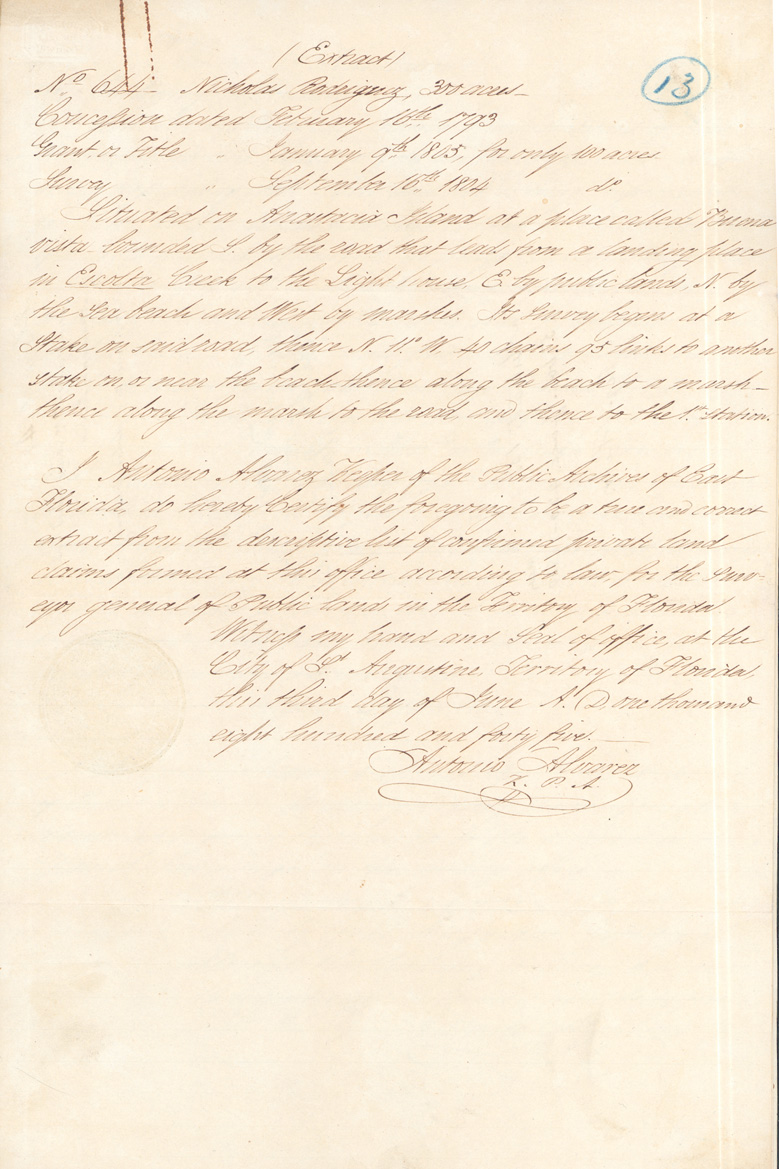 (Extract)
13
No. 644 - Nicholas Rodriguez, 300 acres -
Concession dated February 16th 1793
Grant or Title " January 9th 1805, for only 100 acres
Survey " September 16th 1804 do
Situated on Anastacia Island at a place called Buena
vista bounded S. by the road that leads from a landing place
in Escolta Creek to the Light house, E. by public lands, N. by
the Sea beach and West by marshes. Its Survey begins at a
Stake on said road, thence N. 11° W. 40 chains 95 links to another
stake on or near the beach, thence along the beach to a marsh -
thence along the marsh to the road, and thence to the 1st Station.
I Antonio Alvarez Keeper of the Public Archives of East
Florida, do hereby Certify the foregoing to be a true and correct
extract from the descriptive list of confirmed private land
claims formed at this office according to law, for the Surv-
eyor general of Public lands in the Territory of Florida.
Witness my hand and Seal of office, at the
City of St Augustine, Territory of Florida,
this third day of June A. D. one thousand
eight hundred and forty five. -
Antonio Alvarez
K. P. A.